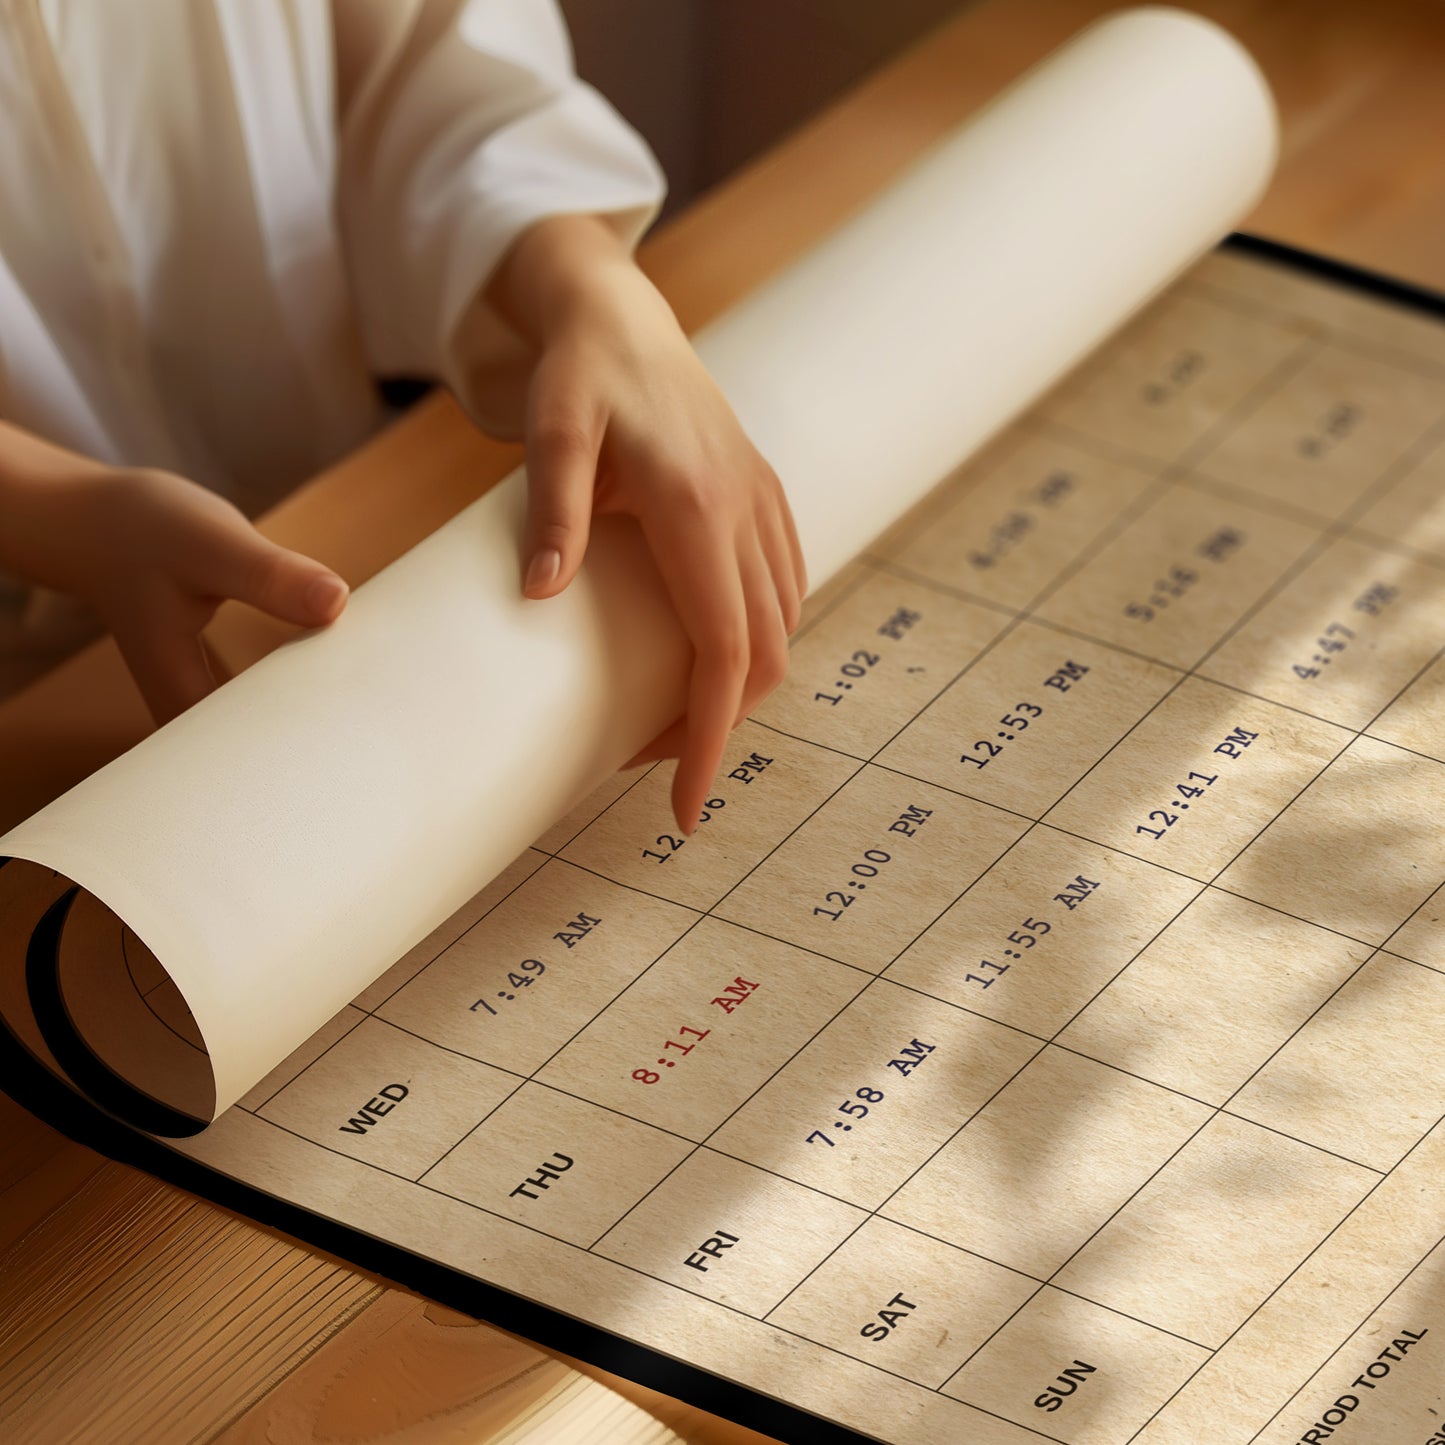 WED 7:49 AM 12:06 PM 1:02 PM
THU 8:11 AM 12:00 PM 12:53 PM 5:14 PM
FRI 7:58 AM 11:55 AM 12:41 PM 4:47 PM
SAT
SUN
RIOD TOTAL